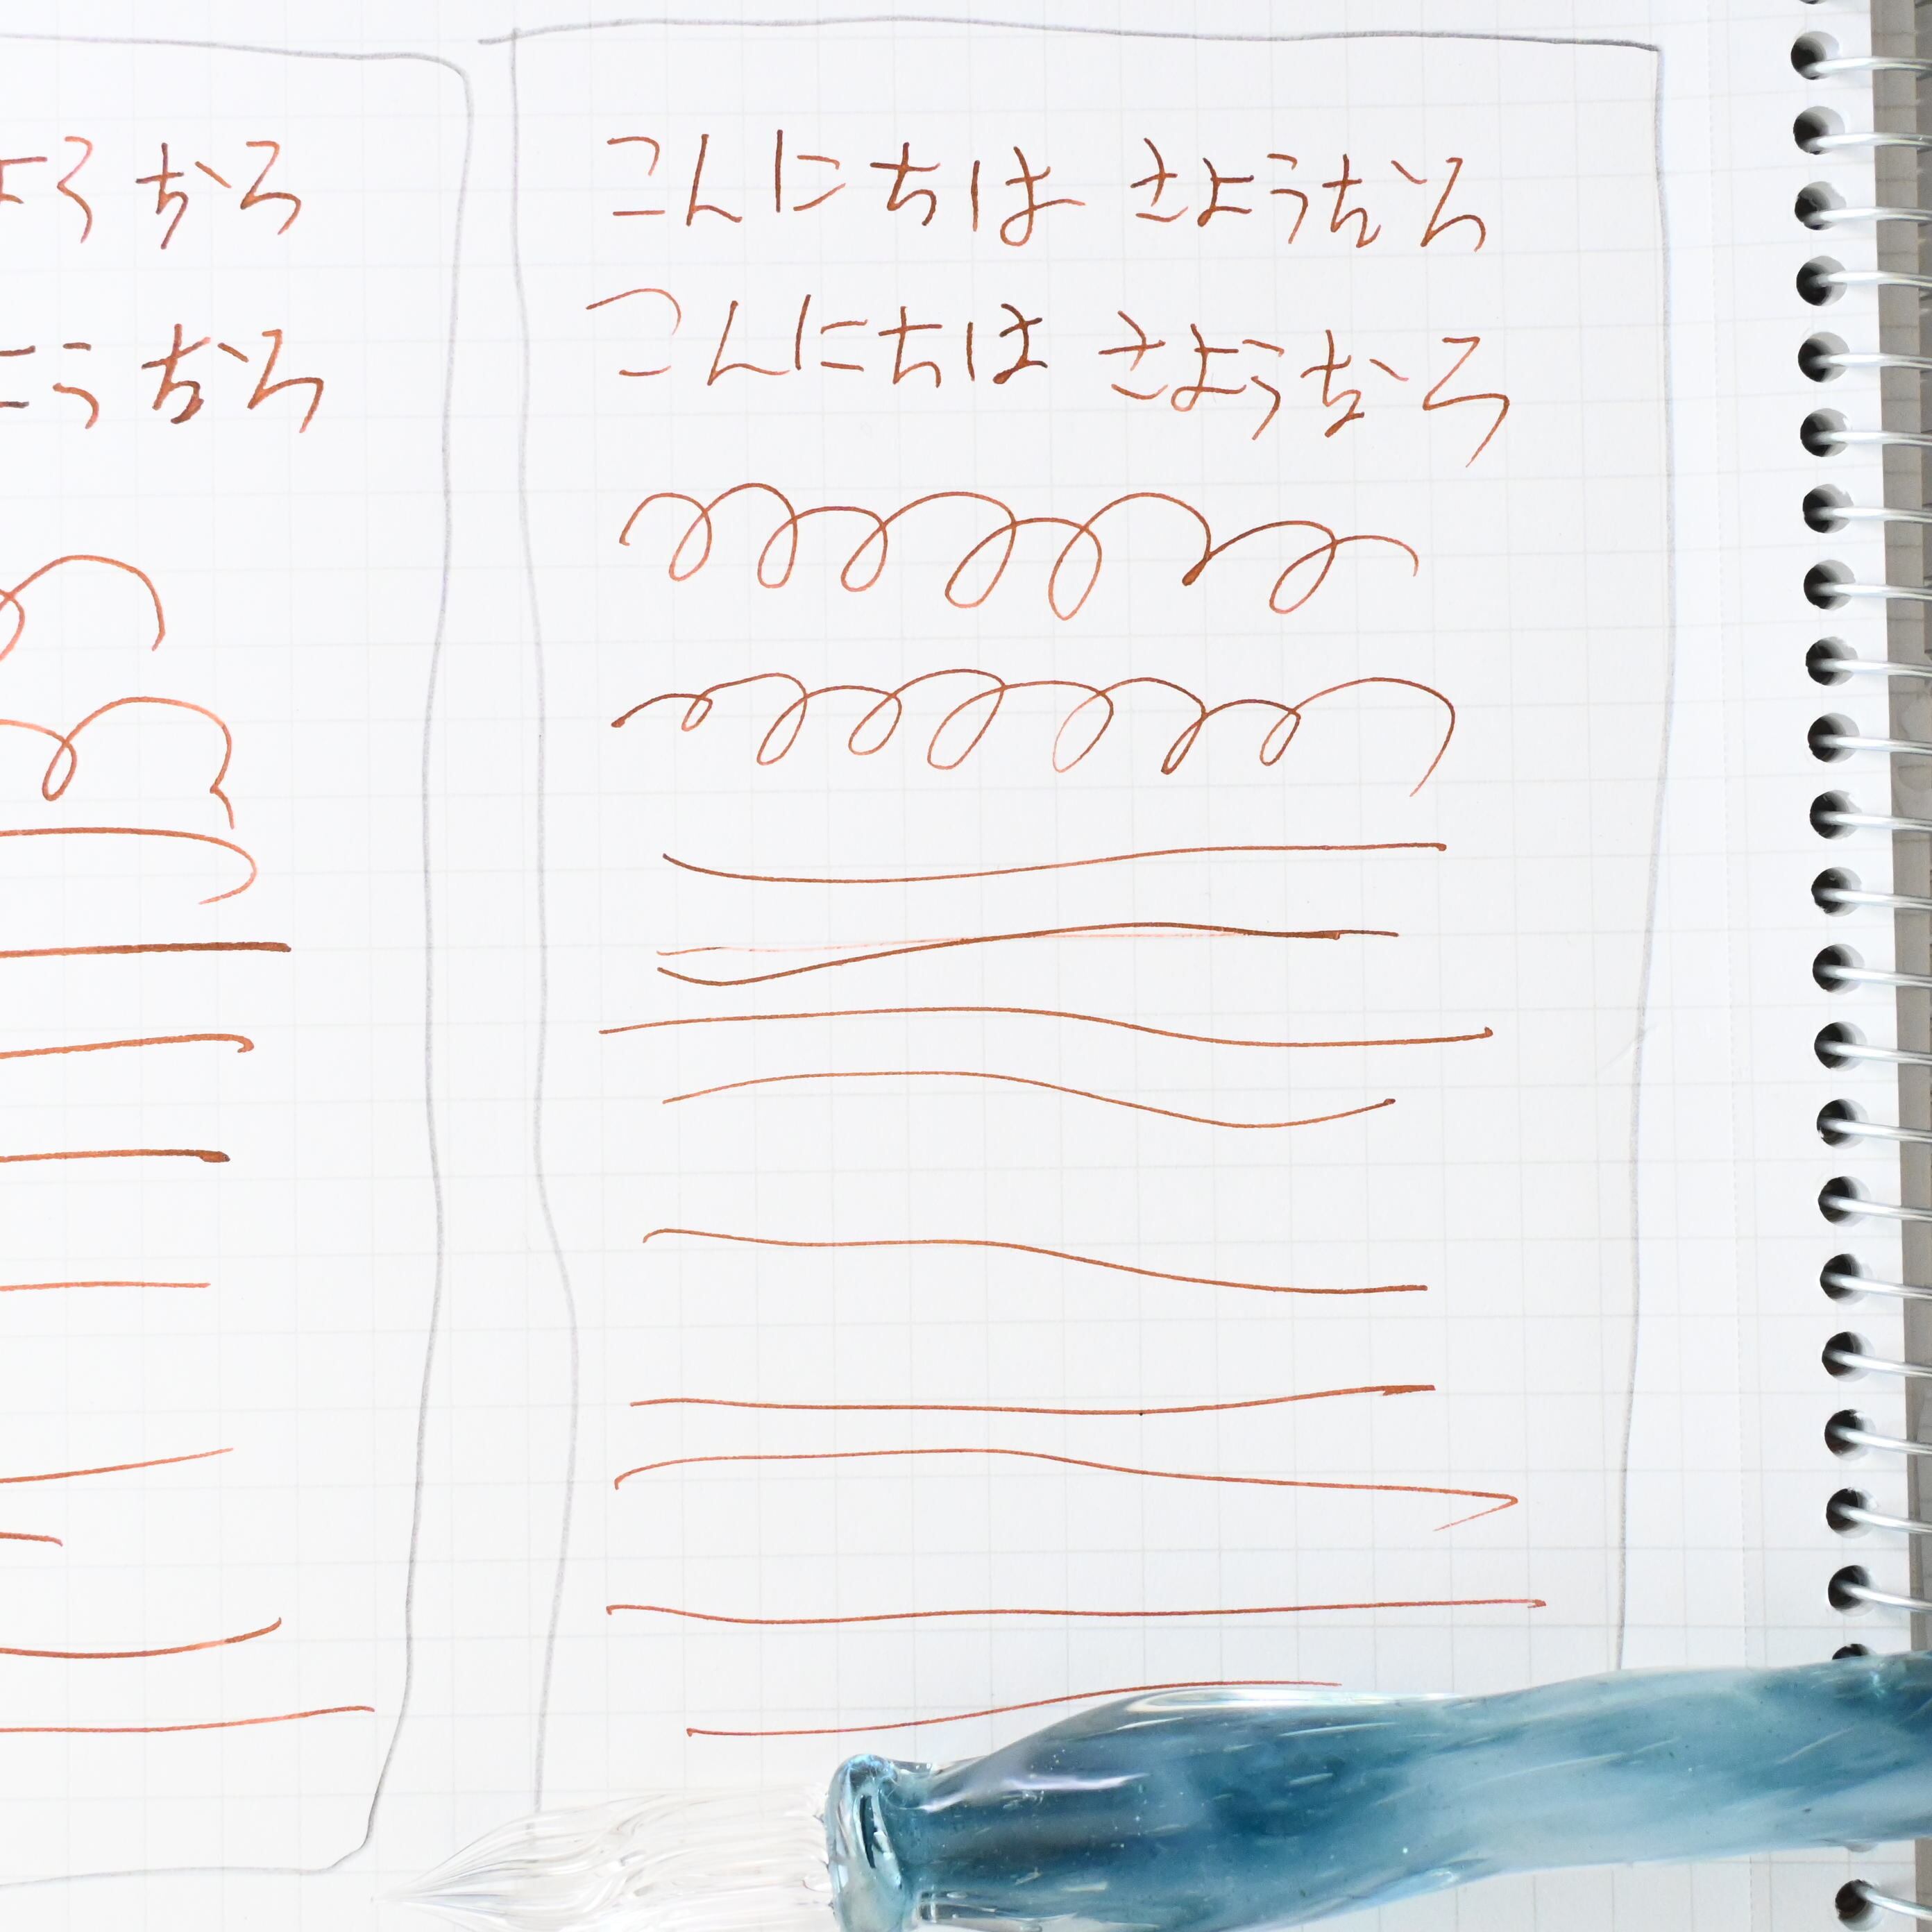 ようなら
うなら
こんにちは さようなら
こんにちは さようなら